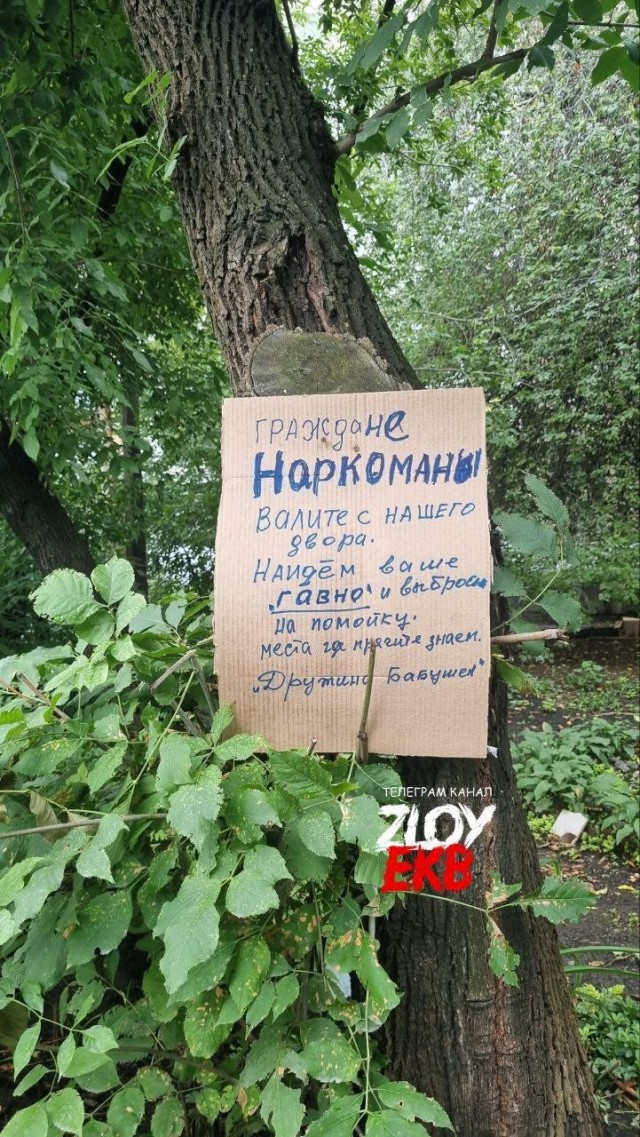 ГРАЖДАНе
НаРКОМАНЫ
ВАЛИТЕ С НАШЕГО
двора.
НАЙДЁМ ваше
"гавно" и выбросим
на помойку.
места где прячите знаем.
"Дружина Бабушек"
ТЕЛЕГРАМ КАНАЛ
ZLOY
EKB